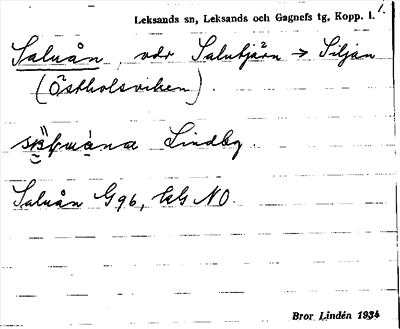 Leksands sn, Leksands och Gagnefs tg, Kopp. l. 1.
Saluån, vdr Salutjärn → Siljan
(Östholsviken).
Lindbg.
Saluån G96, EkG NO.
Bror Lindén 1934